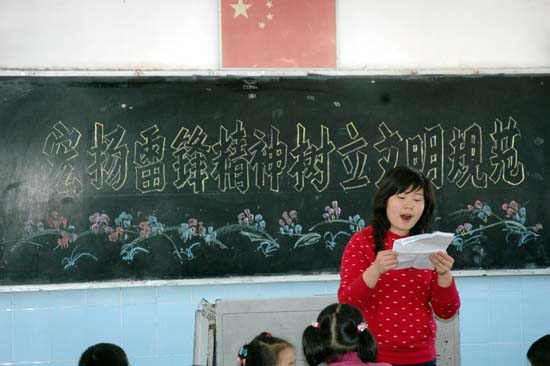 宏扬雷锋精神树立文明規范